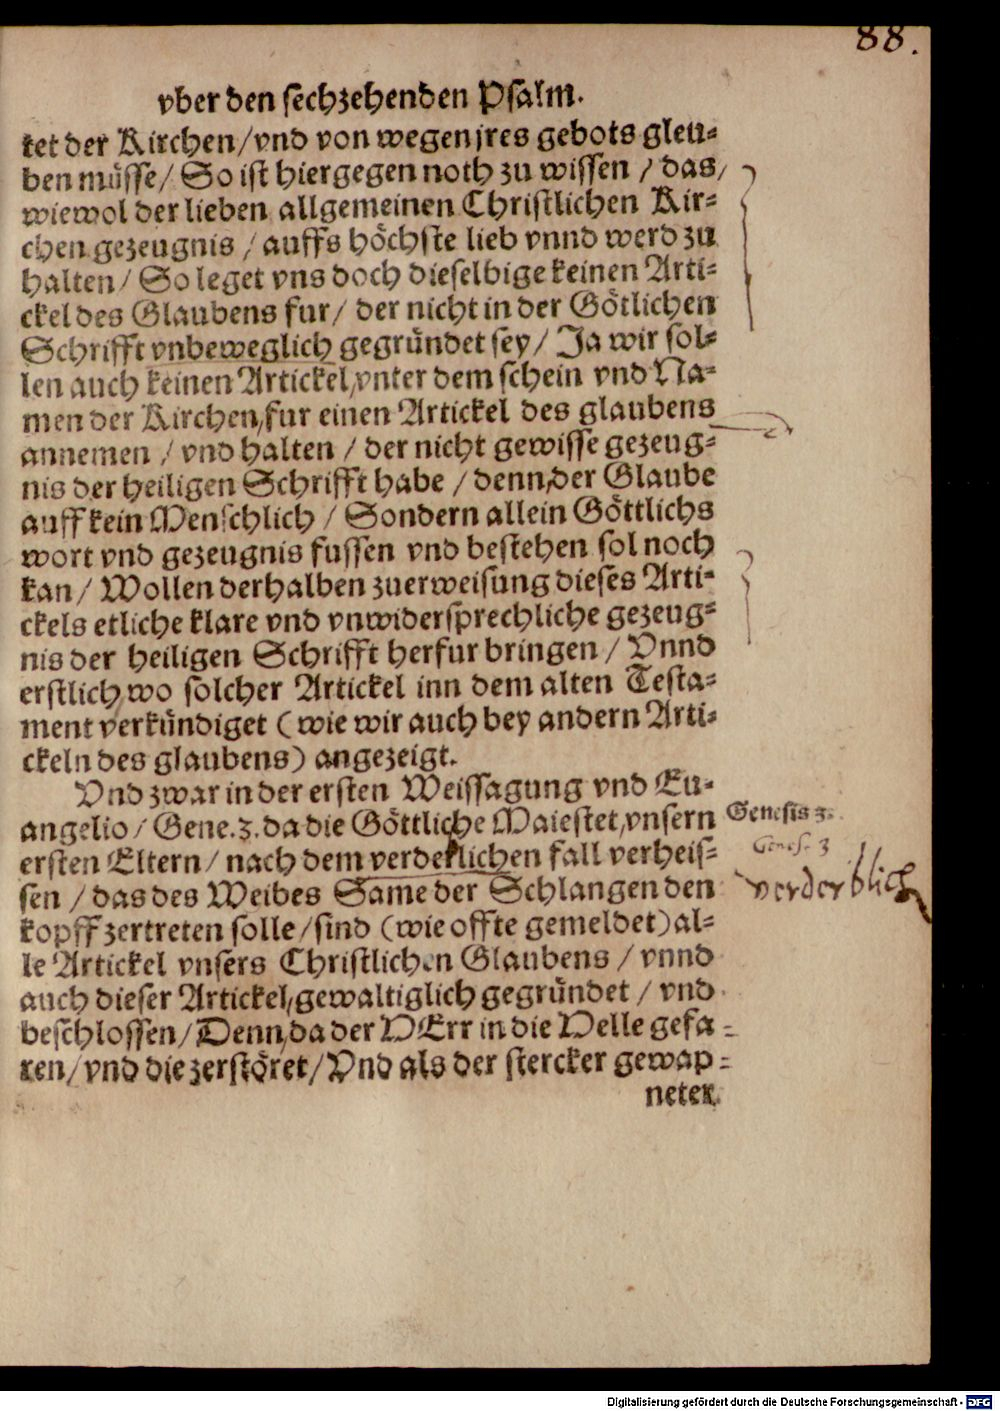 88.
vber den sechzehenden Psalm.
tet der Kirchen/vnd von wegen jres gebots gleu-
ben müsse/ So ist hiergegen noth zu wissen / das/
wiewol der lieben allgemeinen Christlichen Kir-
chen gezeugnis / auffs höchste lieb vnnd werd zu
halten/ So leget vns doch dieselbige keinen Arti-
ckel des Glaubens fur/ der nicht in der Götlichen
Schrifft vnbeweglich gegründet sey/ Ja wir sol-
len auch keinen Artickel/vnter dem schein vnd Na-
men der Kirchen/fur einen Artickel des glaubens
annemen / vnd halten / der nicht gewisse gezeug-
nis der heiligen Schrifft habe / denn/der Glaube
auff kein Menschlich / Sondern allein Göttlichs
wort vnd gezeugnis fussen vnd bestehen sol noch
kan/ Wollen derhalben zuerweisung dieses Arti-
ckels etliche klare vnd vnwidersprechliche gezeug-
nis der heiligen Schrifft herfur bringen / Vnnd
erstlich/wo solcher Artickel inn dem alten Testa-
ment verkündiget (wie wir auch bey andern Arti-
ckeln des glaubens) angezeigt.
Vnd zwar in der ersten Weissagung vnd Eu-
angelio/ Gene.3. da die Göttliche Maiestet/vnsern
Genesis 3.
Genes. 3
ersten Eltern/ nach dem verderlichen fall verheis-
verderblich
sen / das des Weibes Same der Schlangen den
kopff zertreten solle/sind (wie offte gemeldet) al-
le Artickel vnsers Christlichen Glaubens / vnnd
auch dieser Artickel/gewaltiglich gegründet / vnd
beschlossen/ Denn/da der HErr in die Helle gefa-
ren/vnd die zerstöret/Vnd als der stercker gewap-
neter.
Digitalisierung gefördert durch die Deutsche Forschungsgemeinschaft - DFG